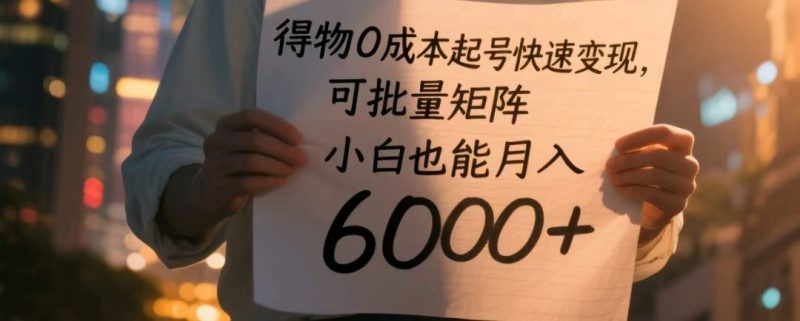 得物0成本起号快速变现,
可批量矩阵
小白也能月入
6000+